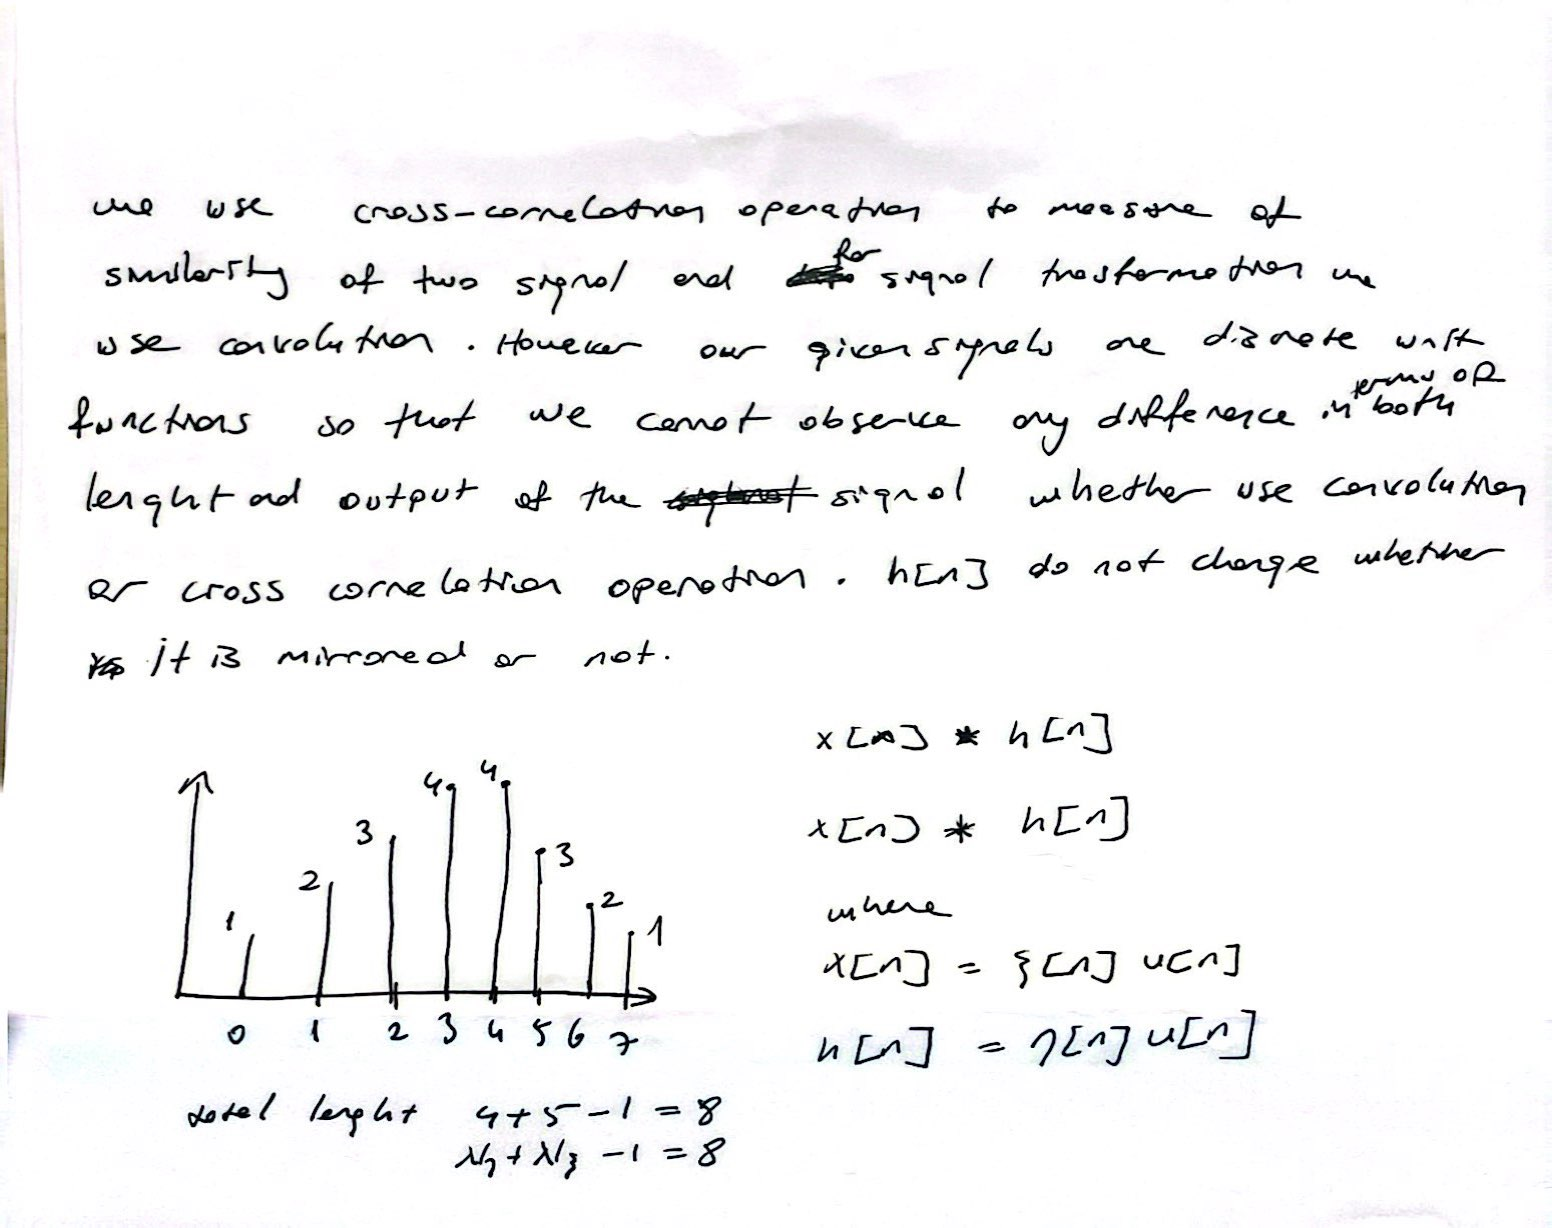 we use cross-correlation operation to measure of
similarity of two signal and for signal trasformation we
use convolution. However our given signals are discrete unit
functions so that we cannot observe any difference in terms of both
lenght and output of the signal whether use convolution
or cross correlation operation. h[n] do not change whether
it is mirrored or not.
x[n] * h[n]
x[n] * h[n]
where
x[n] = ξ[n] u[n]
h[n] = η[n] u[n]
1 2 3 4 4 3 2 1
0 1 2 3 4 5 6 7
total lenght 4+5-1=8
-1=8